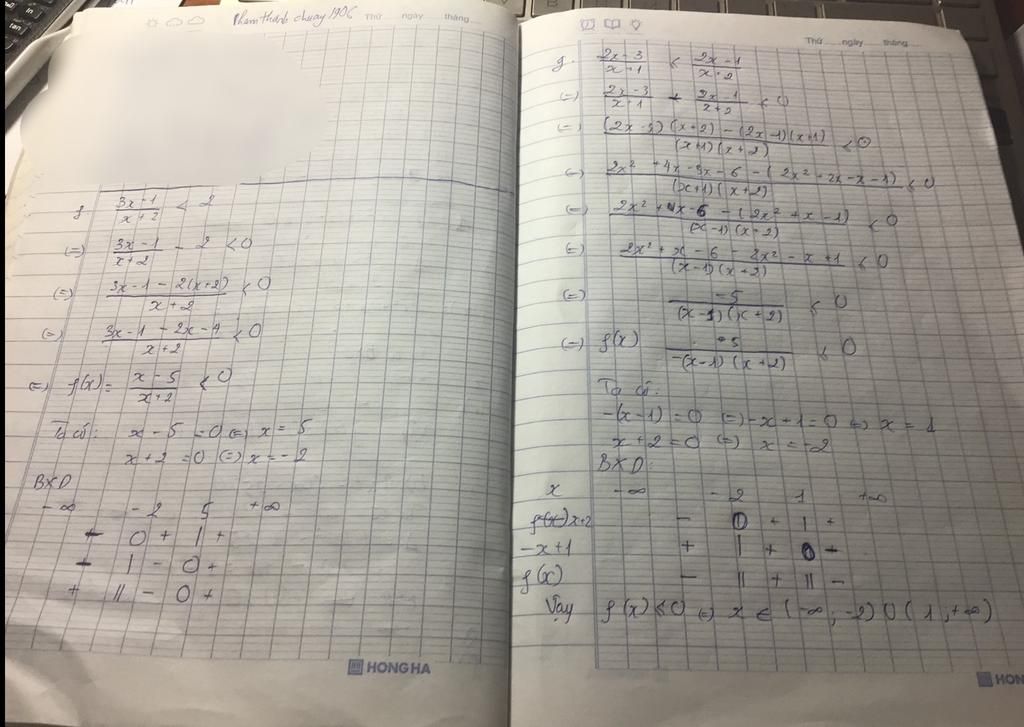 Thứ ngày tháng
f. (3x-1)/(x+2) < 2
(=) (3x-1)/(x+2) - 2 < 0
(=) (3x-1-2(x+2))/(x+2) < 0
(=) (3x-1-2x-4)/(x+2) < 0
(=) f(x) = (x-5)/(x+2) < 0
Ta có: x-5=0 (=) x=5
x+2=0 (=) x=-2
BXD
-∞ -2 5 +∞
- 0 + | +
- | - 0 +
+ || - 0 +
HONG HA
Thứ ngày tháng
g. (2x-3)/(x+1) < (2x-1)/(x+2)
(=) (2x-3)/(x+1) - (2x-1)/(x+2) < 0
(=) ((2x-3)(x+2)-(2x-1)(x+1))/((x+1)(x+2)) < 0
(=) (2x²+4x-3x-6-(2x²+2x-x-1))/((x+1)(x+2)) < 0
(=) (2x²+x-6-(2x²+x-1))/((x-1)(x+2)) < 0
(=) (2x²+x-6-2x²-x+1)/((x-1)(x+2)) < 0
(=) (-5)/((x-1)(x+2)) < 0
(=) f(x) 5/(-(x-1)(x+2)) < 0
Ta có:
-(x-1)=0 (=) -x+1=0 (=) x=1
x+2=0 (=) x=-2
BXD:
x -∞ -2 1 +∞
x+2 - 0 + | +
-x+1 + | + 0 -
f(x) - || + || -
Vậy f(x)<0 (=) x ∈ (-∞;-2) U (1,+∞)
HON